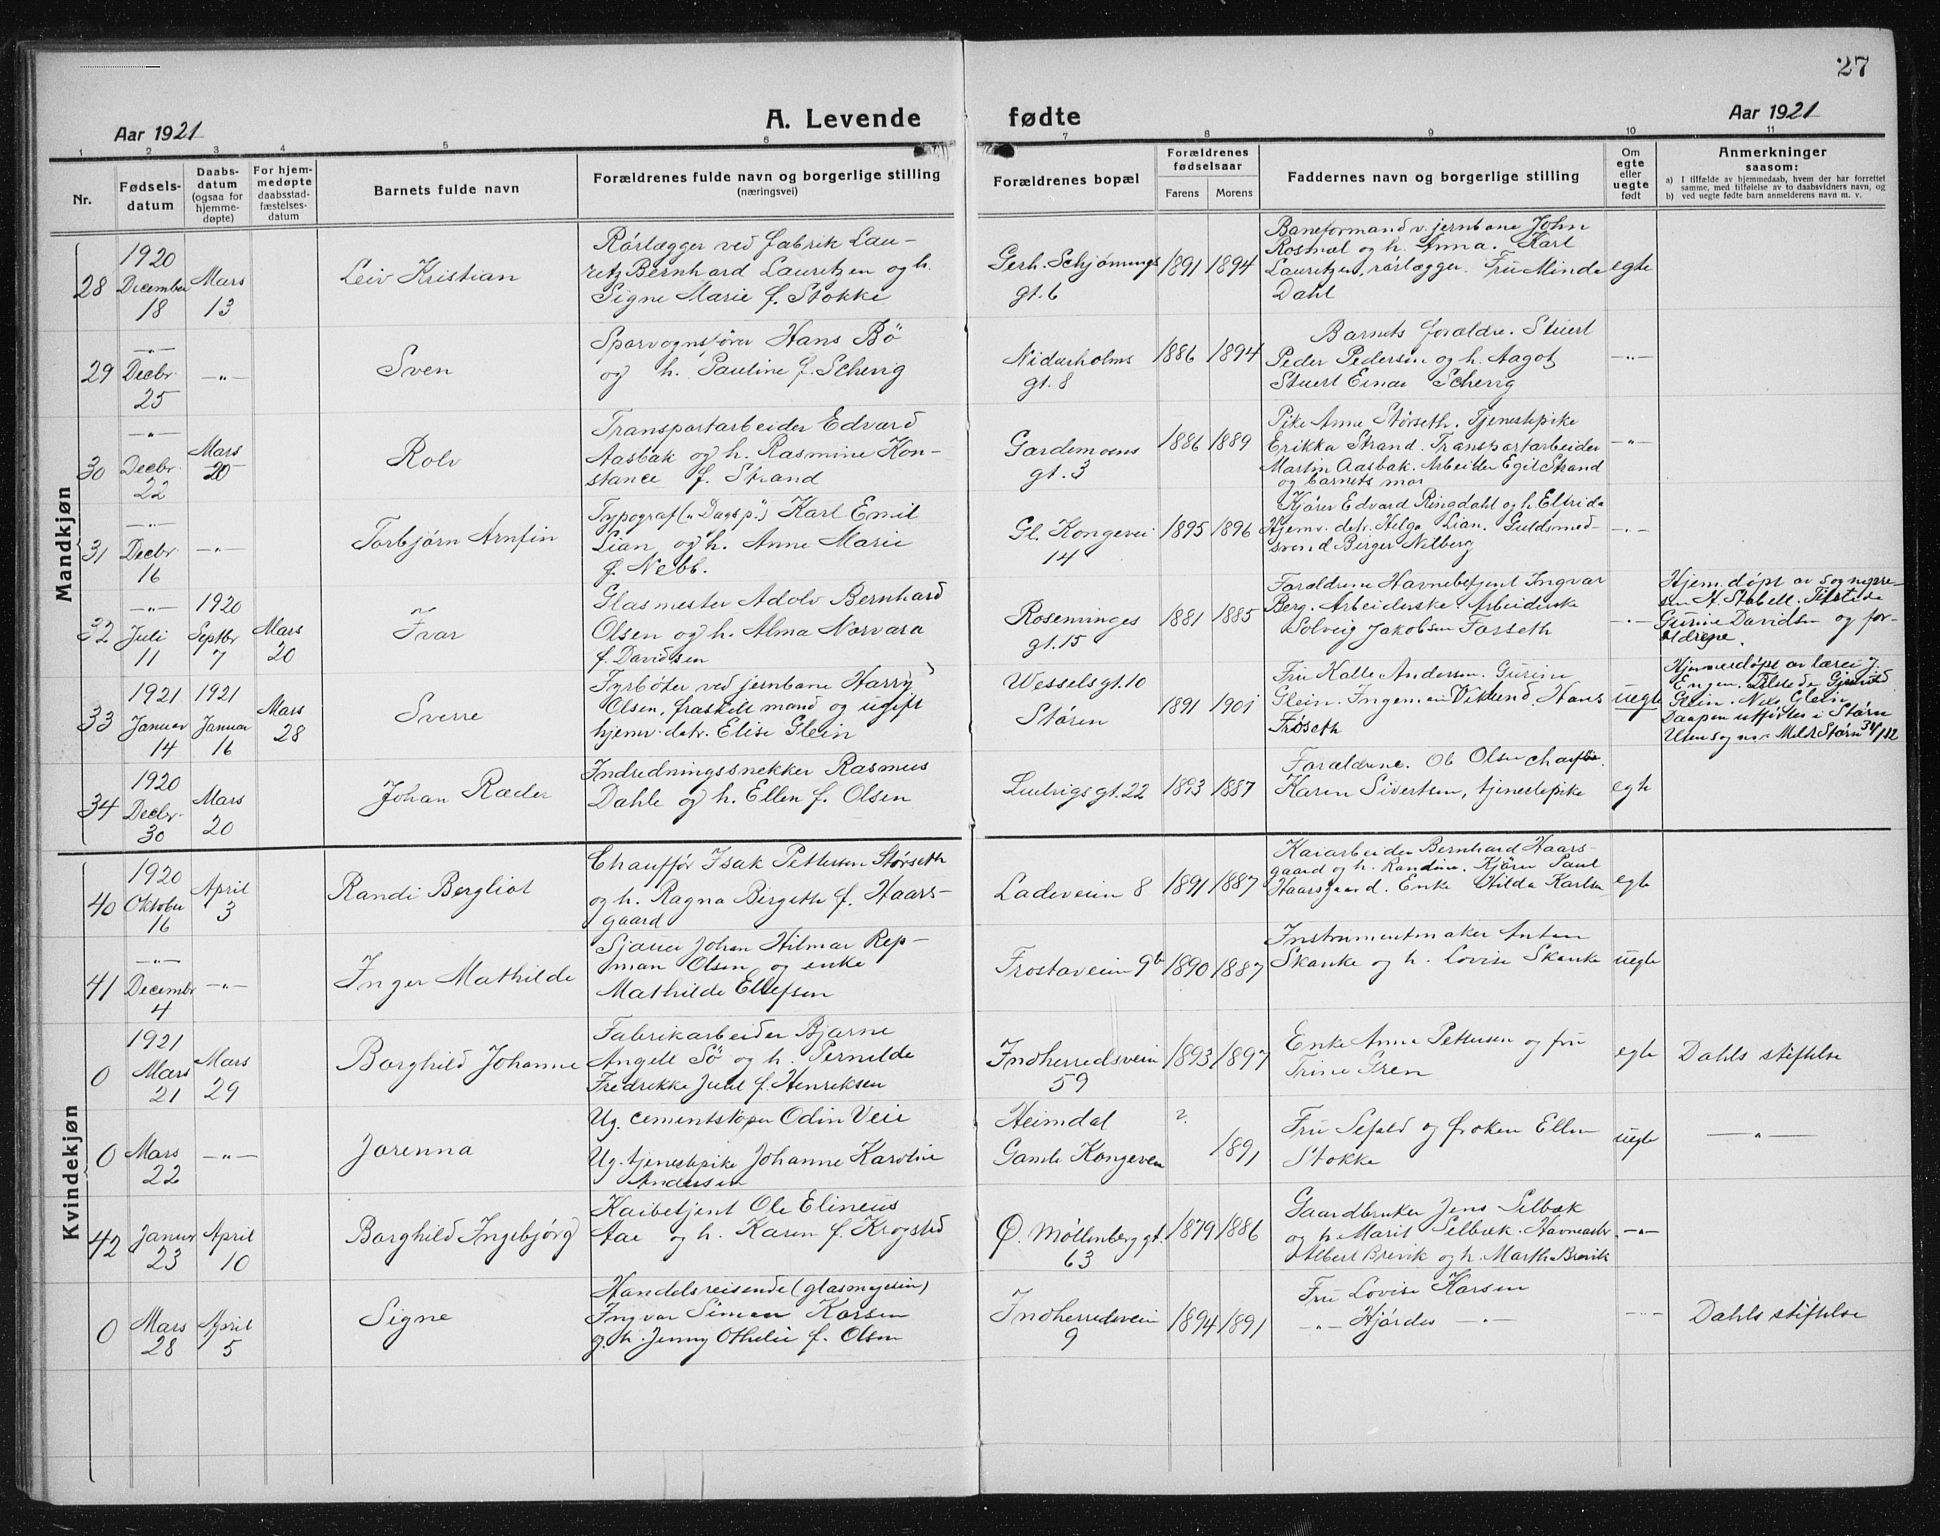 27
A. Levende fødte
Aar 1921
Aar 1921
1 2 3 4 5 6 7 8 9 10 11
Nr.
Fødsels-
datum
Daabs-
datum
(ogsaa for
hjemme-
døpte)
For hjem-
medøpte
daabsstad-
fæstelses-
datum
Barnets fulde navn
Forældrenes fulde navn og borgerlige stilling
(næringsvei)
Forældrenes bopæl
Forældrenes
fødselsaar
Farens Morens
Faddernes navn og borgerlige stilling
Om
egte
eller
uegte
født
Anmerkninger
saasom:
a) I tilfælde av hjemmedaab, hvem der har forrettet
samme, med tilføielse av to daabsvidners navn, og
b) ved uegte fødte barn anmelderens navn m. v.
Mandkjøn
28
1920
December
18
Mars
13
Leiv Kristian
Rørlægger ved fabrik Lau-
ritz Bernhard Lauritzen og h.
Signe Marie f. Stokke
Gerh. Schjønnings
gt. 6
1891 1894
Baneformand v. jernbane John
Rosmæl og h. Anna. Karl
Lauritzen, rørlægger. Fru Minda
Dahl
egte
29
—„—
Decbr.
25
—„—
Sven
Sporvognsfører Hans Bø
og h. Pauline f. Scherrg
Nidarholms
gt. 8
1886 1894
Barnets forældre. Stuert
Peder Pedersen og h. Aagot,
Stuert Einar Scherrg
—„—
30
—„—
Decbr.
22
Mars
20
Rolv
Transportarbeider Edvard
Aasbak og h. Rasmine Kon-
stance f. Strand
Gardemoens
gt. 3
1886 1889
Pike Anne Størseth. Tjenestepike
Erikka Strand. Transportarbeider
Martin Aasbak. Arbeider Egil Strand
og barnets mor
—„—
31
—„—
Decbr.
16
—„—
Torbjørn Arnfin
Typograf („Dagsp.") Karl Emil
Lian og h. Anne Marie
f. Nebb.
Gl. Kongevei
14
1895 1896
Kjører Edvard Ringdahl og h. Elfrida
Hjemv. datr. Helga Lian. Guldsmed-
svend Birger Nilberg
—„—
32
—„—
Juli
11
1920
Septbr
7
Mars
20
Ivar
Glasmester Adolv Bernhard
Olsen og h. Alma Narvara
f. Davidsen
Rosenvinges
gt. 15
1881 1885
Forældrene Havnebetjent Ingvar
Berg. Arbeiderske Arbeiderske
Solveig Jakobsen Forseth
—„—
Hjem. døpt av sognepre-
sten H. Stabell. Tilstede
Gurine Davidsen og for-
ældrene.
33
1921
Januar
14
1921
Januar
16
Mars
28
Sverre
Fyrbøter ved jernbane Harry
Olsen, fraskilt mand og ugift
hjemv. datr. Elise Glein
Wessels gt. 10
Støren
1891 1901
Fru Kalle Andersen. Gurine
Glein. Ingeman Viklund. Hans
Frøseth
uegte
Hjemmedøpt av lærer J.
Engen. Tilstede
Glein. Nils Glein
Daapen utført i Støren
34
1920
Decbr.
30
Mars
20
Johan Ræder
Indredningssnekker Rasmus
Dahle og h. Ellen f. Olsen
Ludvigs gt. 22
1893 1887
Forældrene. Ole Olsen chauffør.
Karen Sivertsen, tjenestepike
egte
Kvindekjøn
40
1920
Oktober
16
April
3
Randi Bergliot
Chauffør Isak Pettersen Størseth
og h. Ragna Bergete f. Haars-
gaard
Ladeveien 8
1891 1887
Kaiarbeider Bernhard Haars-
gaard og h. Randine. Kjører Paul
Haarsgaard. Enke Hilda Karlsen
egte
41
—„—
Decembr
4
—„—
Inger Mathilde
Sjauer Johan Hilmar Rep-
man Olsen og enke
Mathilde Ellefsen
Frostaveien 9b
1890 1887
Instrumentmaker Anton
Skanke og h. Lovise Skanke
uegte
0
1921
Mars
21
Mars
29
Borghild Johanne
Fabrikarbeider Bjarne
Angell Sø og h. Pernilde
Fredrikke Juul f. Henriksen
Indherredsveien
59
1893 1897
Enke Anna Pettersen og fru
Trine Gren
egte
Dahls stiftelse
0
Mars
22
—„—
Jorenna
Ug. cementstøper Odin Veie
Ug. tjenestepike Johanne Karoline
Andersen
Heimdal
Gamle Kongeveien
?
1891
Fru Sefald og frøken Ellen
Stokke
uegte
—„—
42
Januar
23
April
10
Borghild Ingebjørg
Kaibetjent Ole Elineus
Aae og h. Karen f. Krogstad
Ø. Møllenberg gt.
63
1879 1886
Gaardbruker Jens Selbæk
og h. Marit Selbæk. Havnearbr.
Albert Brevik og h. Martha Brevik
—„—
0
Mars
28
April
5
Signe
Handelsreisende (glasmagasin)
Ingvar Simon Karsen
og h. Jenny Othelie f. Olsen
Indherredsveien
9
1894 1891
Fru Lovise Karsen
—„— Hjørdis —„—
—„—
Dahls stiftelse